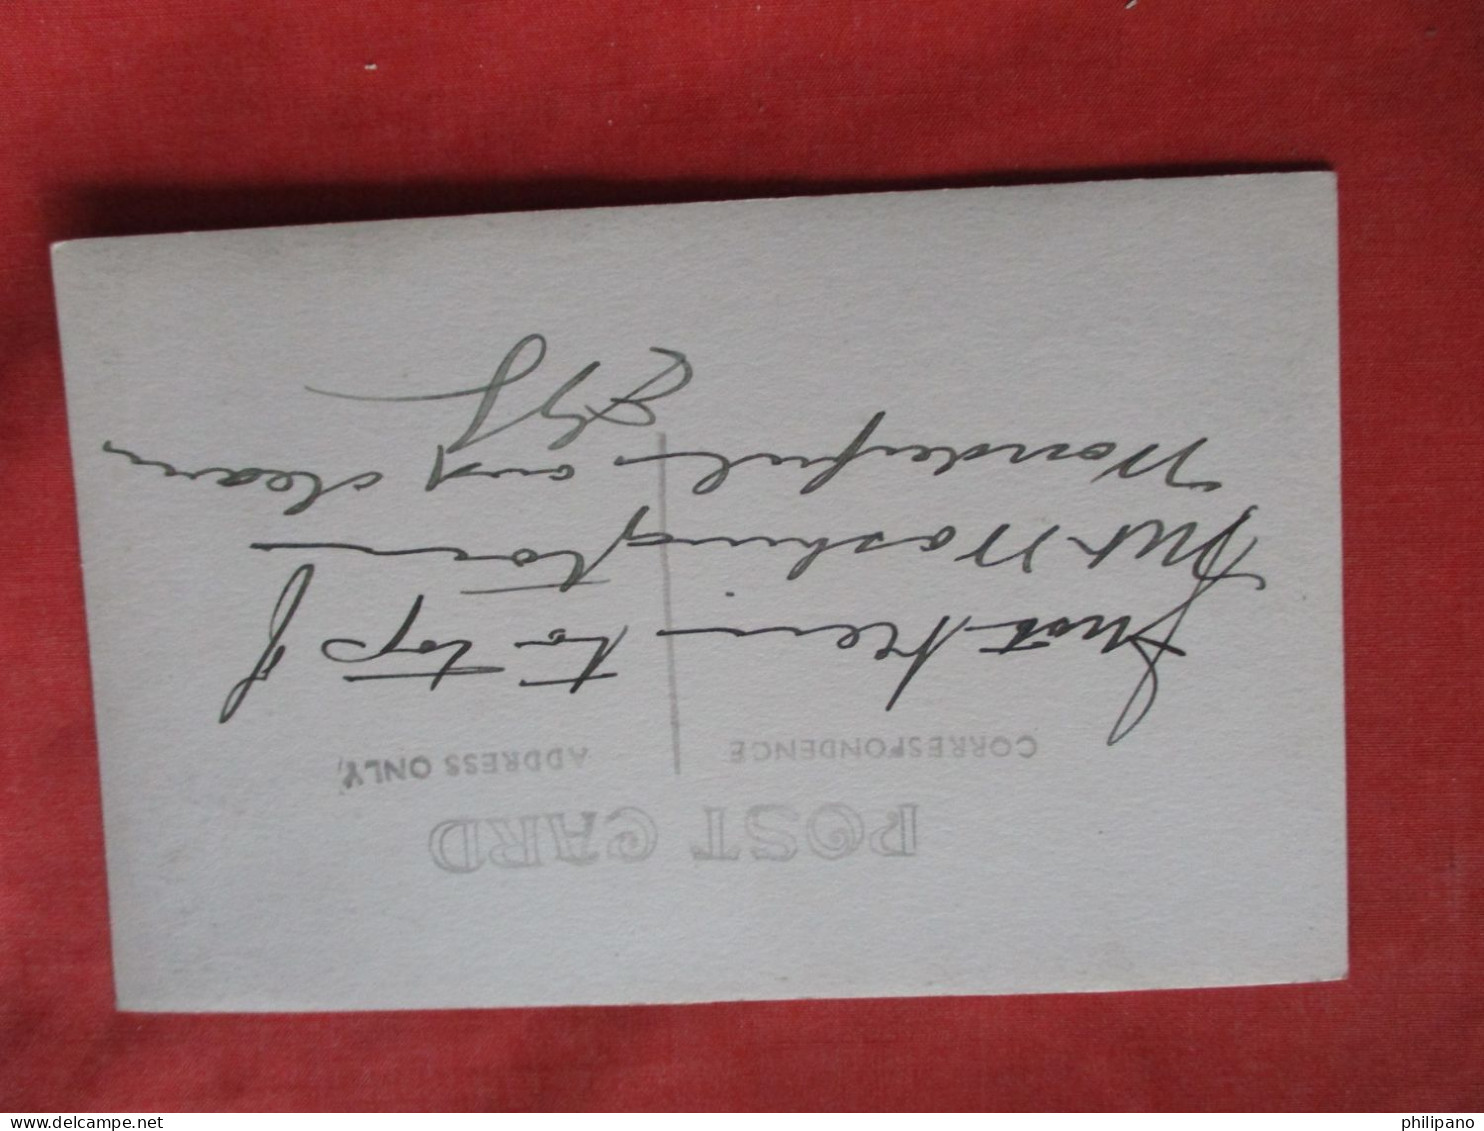 POST CARD
CORRESPONDENCE
ADDRESS ONLY,
Just been to top of
Mt Washington
Wonderful and clear
delcampe.net
philipano